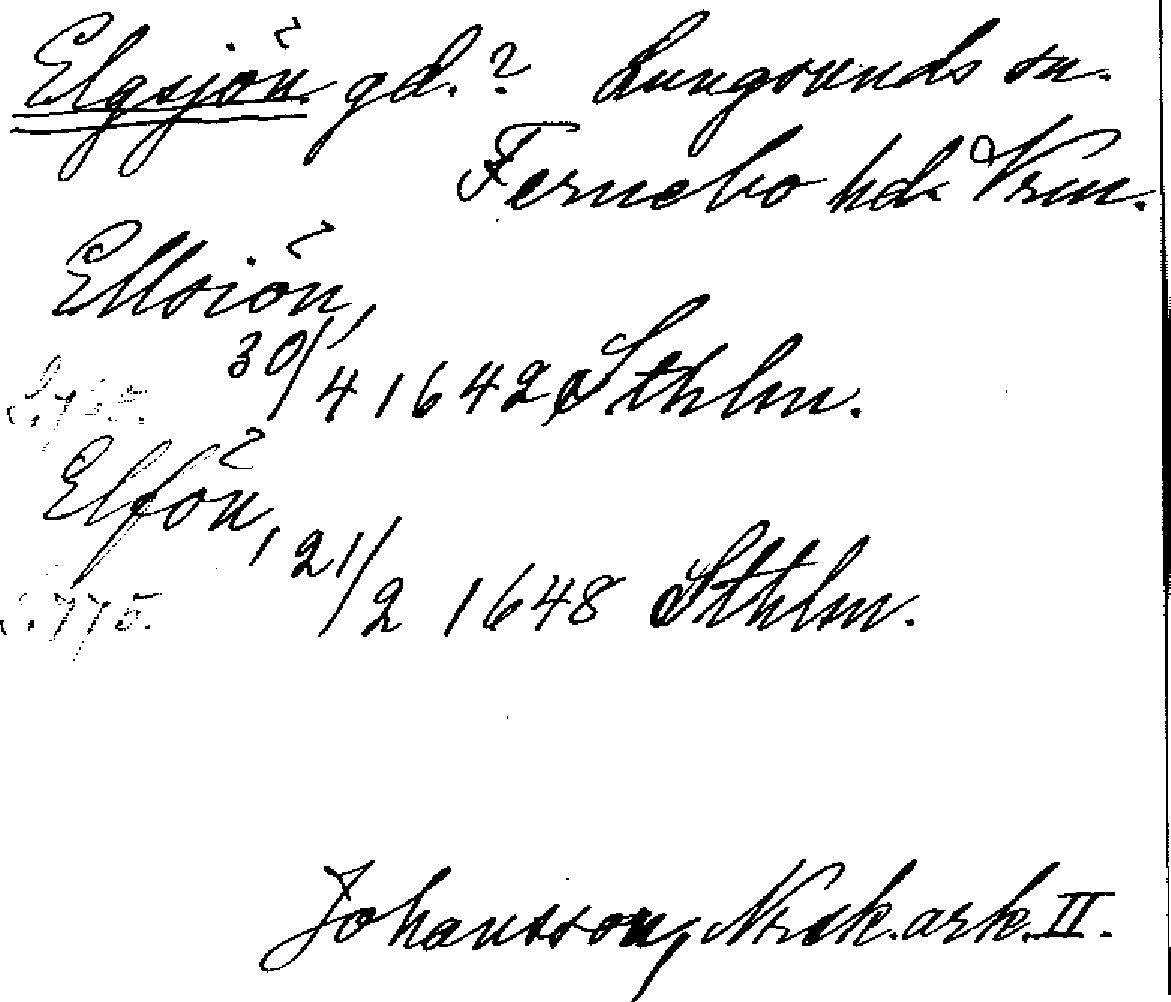 Elgsjön gd.? Lungsunds sn.
Fernebo hd. Vrm.
Ellsiön,
30/4 1642, Sthlm.
Elfön,
21/2 1648 Sthlm.
s. 775.
Johansson, Nrsk. ark. II.